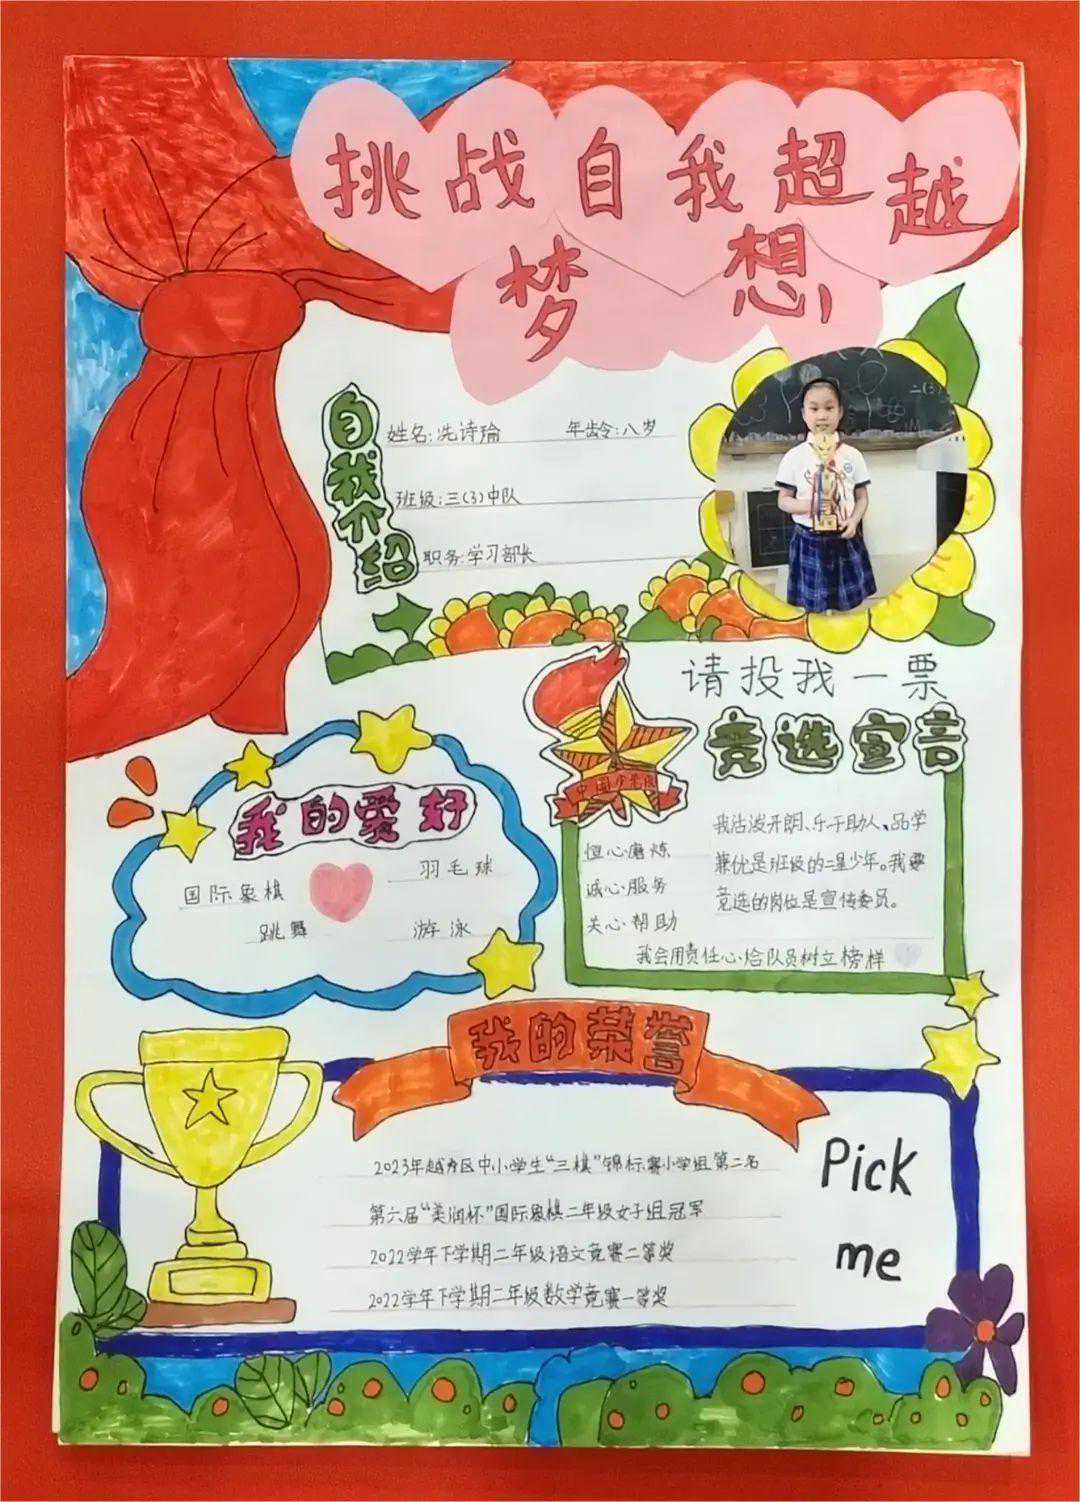 挑战自我超越
梦想
自我介绍
姓名:冼诗瑜 年龄:八岁
班级:三(3)中队
职务:学习部长
二(3)
请投我一票
竞选宣言
中国少先队
恒心磨炼
诚心服务
关心帮助
我活泼开朗、乐于助人、品学
兼优是班级的二星少年。我要
竞选的岗位是宣传委员。
我会用责任心给队员树立榜样
我的爱好
国际象棋
羽毛球
跳舞
游泳
我的荣誉
2023年越秀区中小学生“三棋”锦标赛小学组第二名
第六届“美润杯”国际象棋二年级女子组冠军
2022学年下学期二年级语文竞赛二等奖
2022学年下学期二年级数学竞赛一等奖
Pick
me